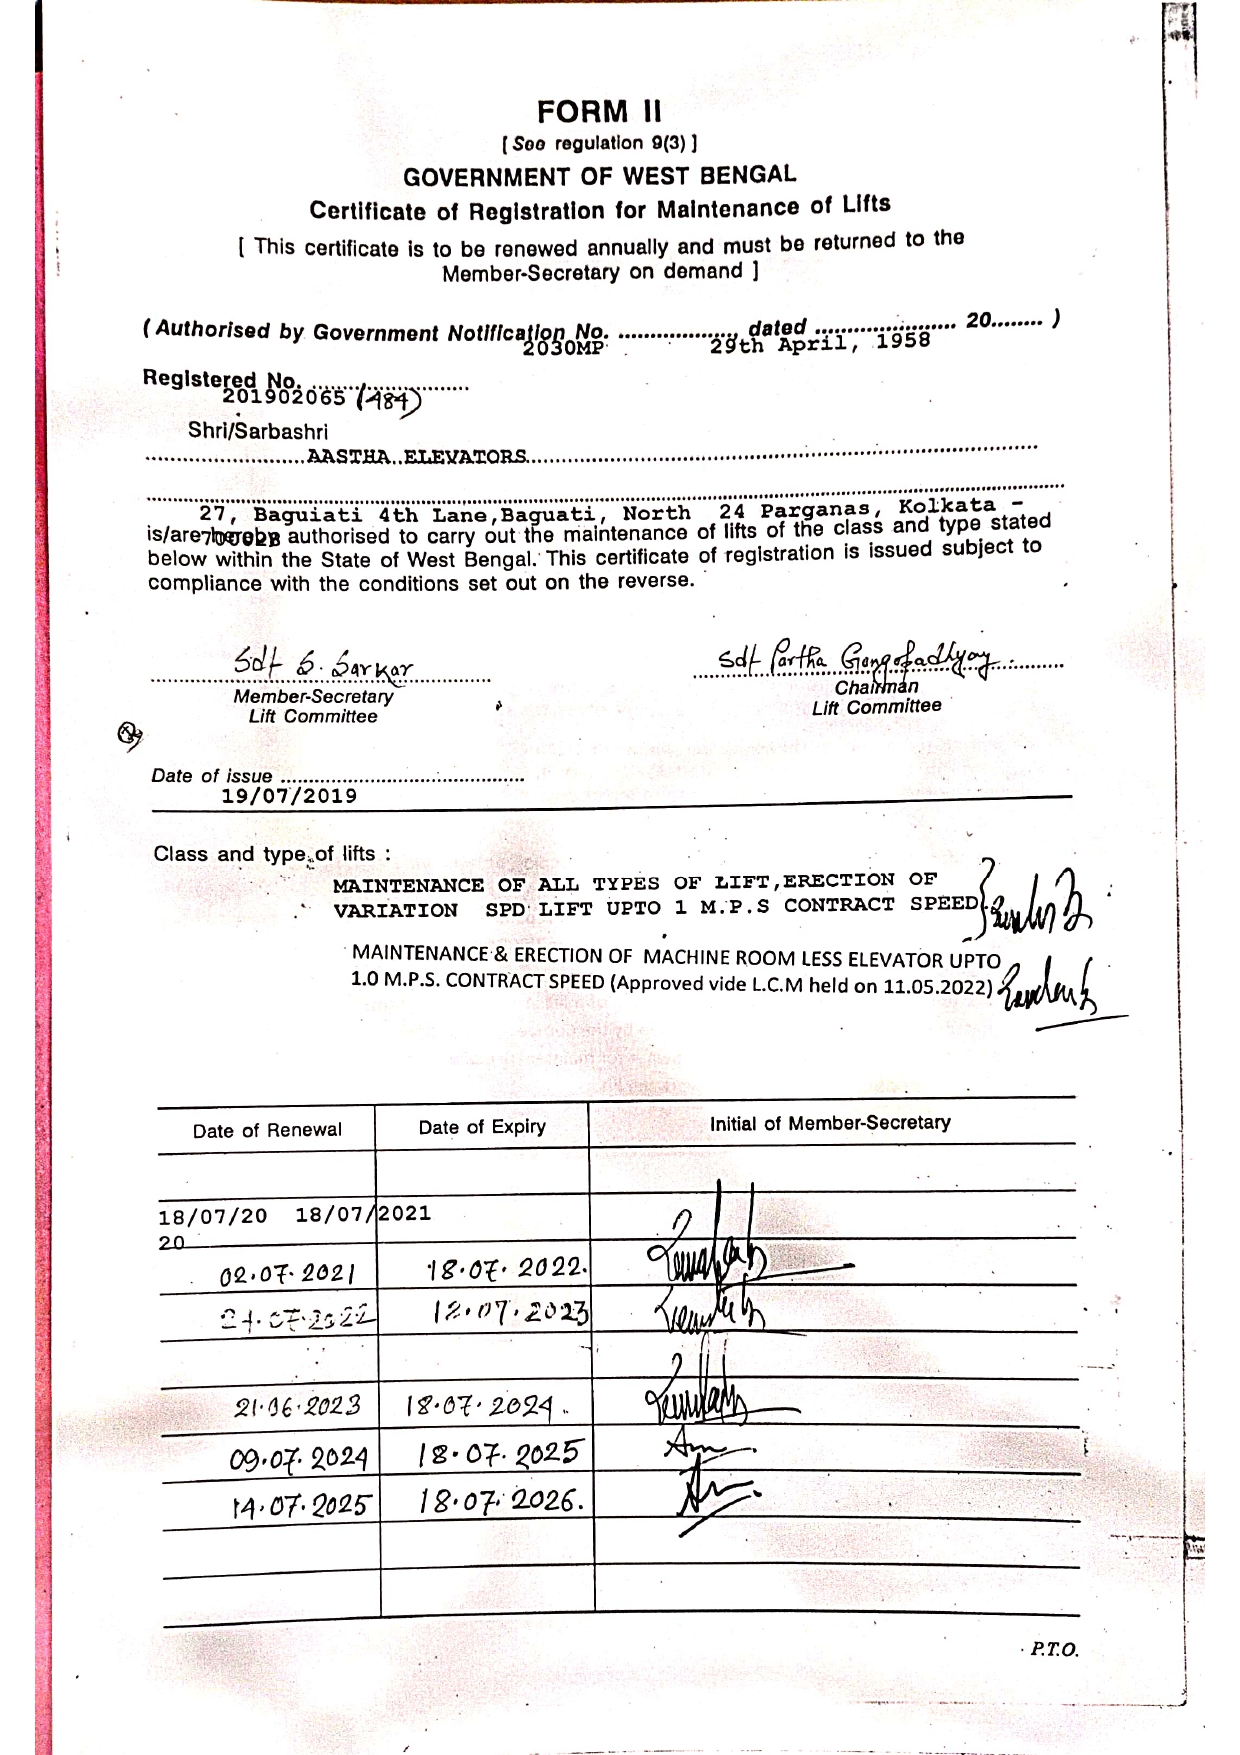 FORM II
[ See regulation 9(3) ]
GOVERNMENT OF WEST BENGAL
Certificate of Registration for Maintenance of Lifts
[ This certificate is to be renewed annually and must be returned to the
Member-Secretary on demand ]
( Authorised by Government Notification No. .................... dated ........................ 20........ )
2030MP 29th April, 1958
Registered No. ..........................
201902065 (484)
Shri/Sarbashri
........................AASTHA..ELEVATORS................................................................................
27, Baguiati 4th Lane,Baguati, North 24 Parganas, Kolkata -
is/are hereby authorised to carry out the maintenance of lifts of the class and type stated
below within the State of West Bengal. This certificate of registration is issued subject to
compliance with the conditions set out on the reverse.
Sd/- S. Sarkar Sd/- Partha Gangopadhyay
Member-Secretary Chairman
Lift Committee Lift Committee
Date of issue ..........................................
19/07/2019
Class and type of lifts :
MAINTENANCE OF ALL TYPES OF LIFT,ERECTION OF
VARIATION SPD LIFT UPTO 1 M.P.S CONTRACT SPEED
MAINTENANCE & ERECTION OF MACHINE ROOM LESS ELEVATOR UPTO
1.0 M.P.S. CONTRACT SPEED (Approved vide L.C.M held on 11.05.2022)
Date of Renewal Date of Expiry Initial of Member-Secretary
18/07/20 18/07/2021
20
02.07.2021 18.07.2022.
07.2022 18.07.2023
21.06.2023 18.07.2024.
09.07.2024 18.07.2025
14.07.2025 18.07.2026.
P.T.O.